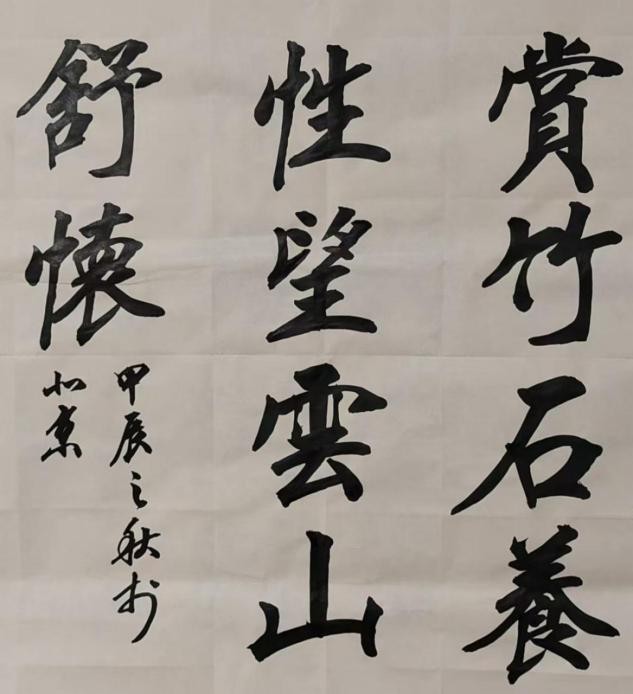 賞竹石養
性望雲山
舒懷
甲辰之秋於
北京